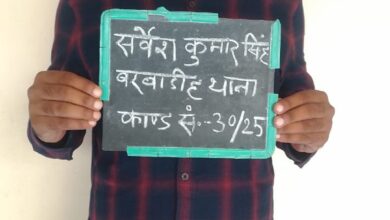 सर्वेश कुमार सिंह
बरवाडीह थाना
काण्ड सं.-30/25